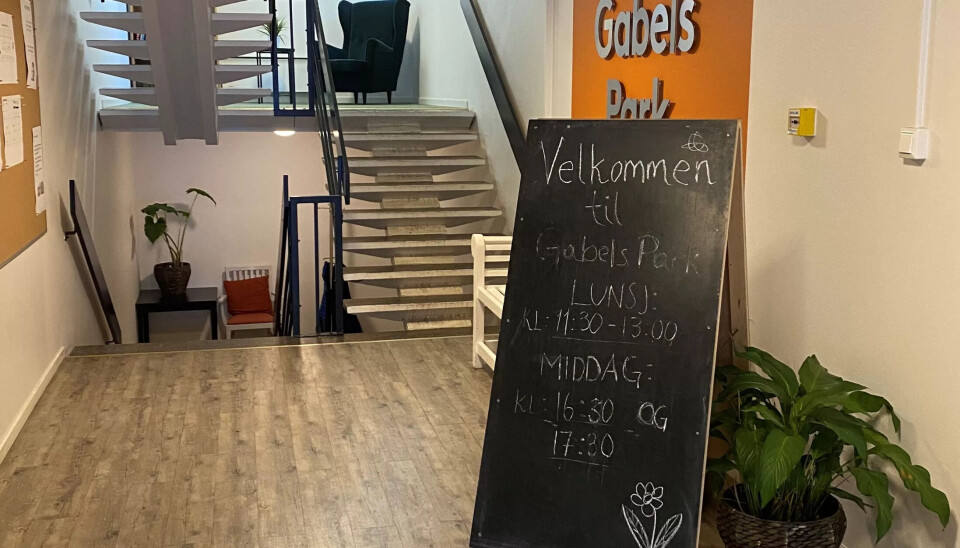 Gabels
Park
Velkommen
til
Gabels Park
LUNSJ:
KL: 11:30 - 13:00
MIDDAG:
KL: 16:30 OG
17:30